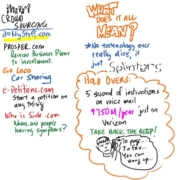 CROWD
SOURCING
doMyStuff.com
PROSPER.com
Review Business Plans
to investment.
Go Loco
Car Sharing
E-Petitions.com
Start a petition on
any thing
Who is Sick.com
Where are people
having symptoms?
WHAT
DOES IT ALL
MEAN?
No technology ever
really dies, it
just splinters
HANG OVERS:
5 second of instructions
on voice mail
$750M/year just on
Verizon
TAKE BACK THE BEEP!
To pay
for this,
You can
hang up...